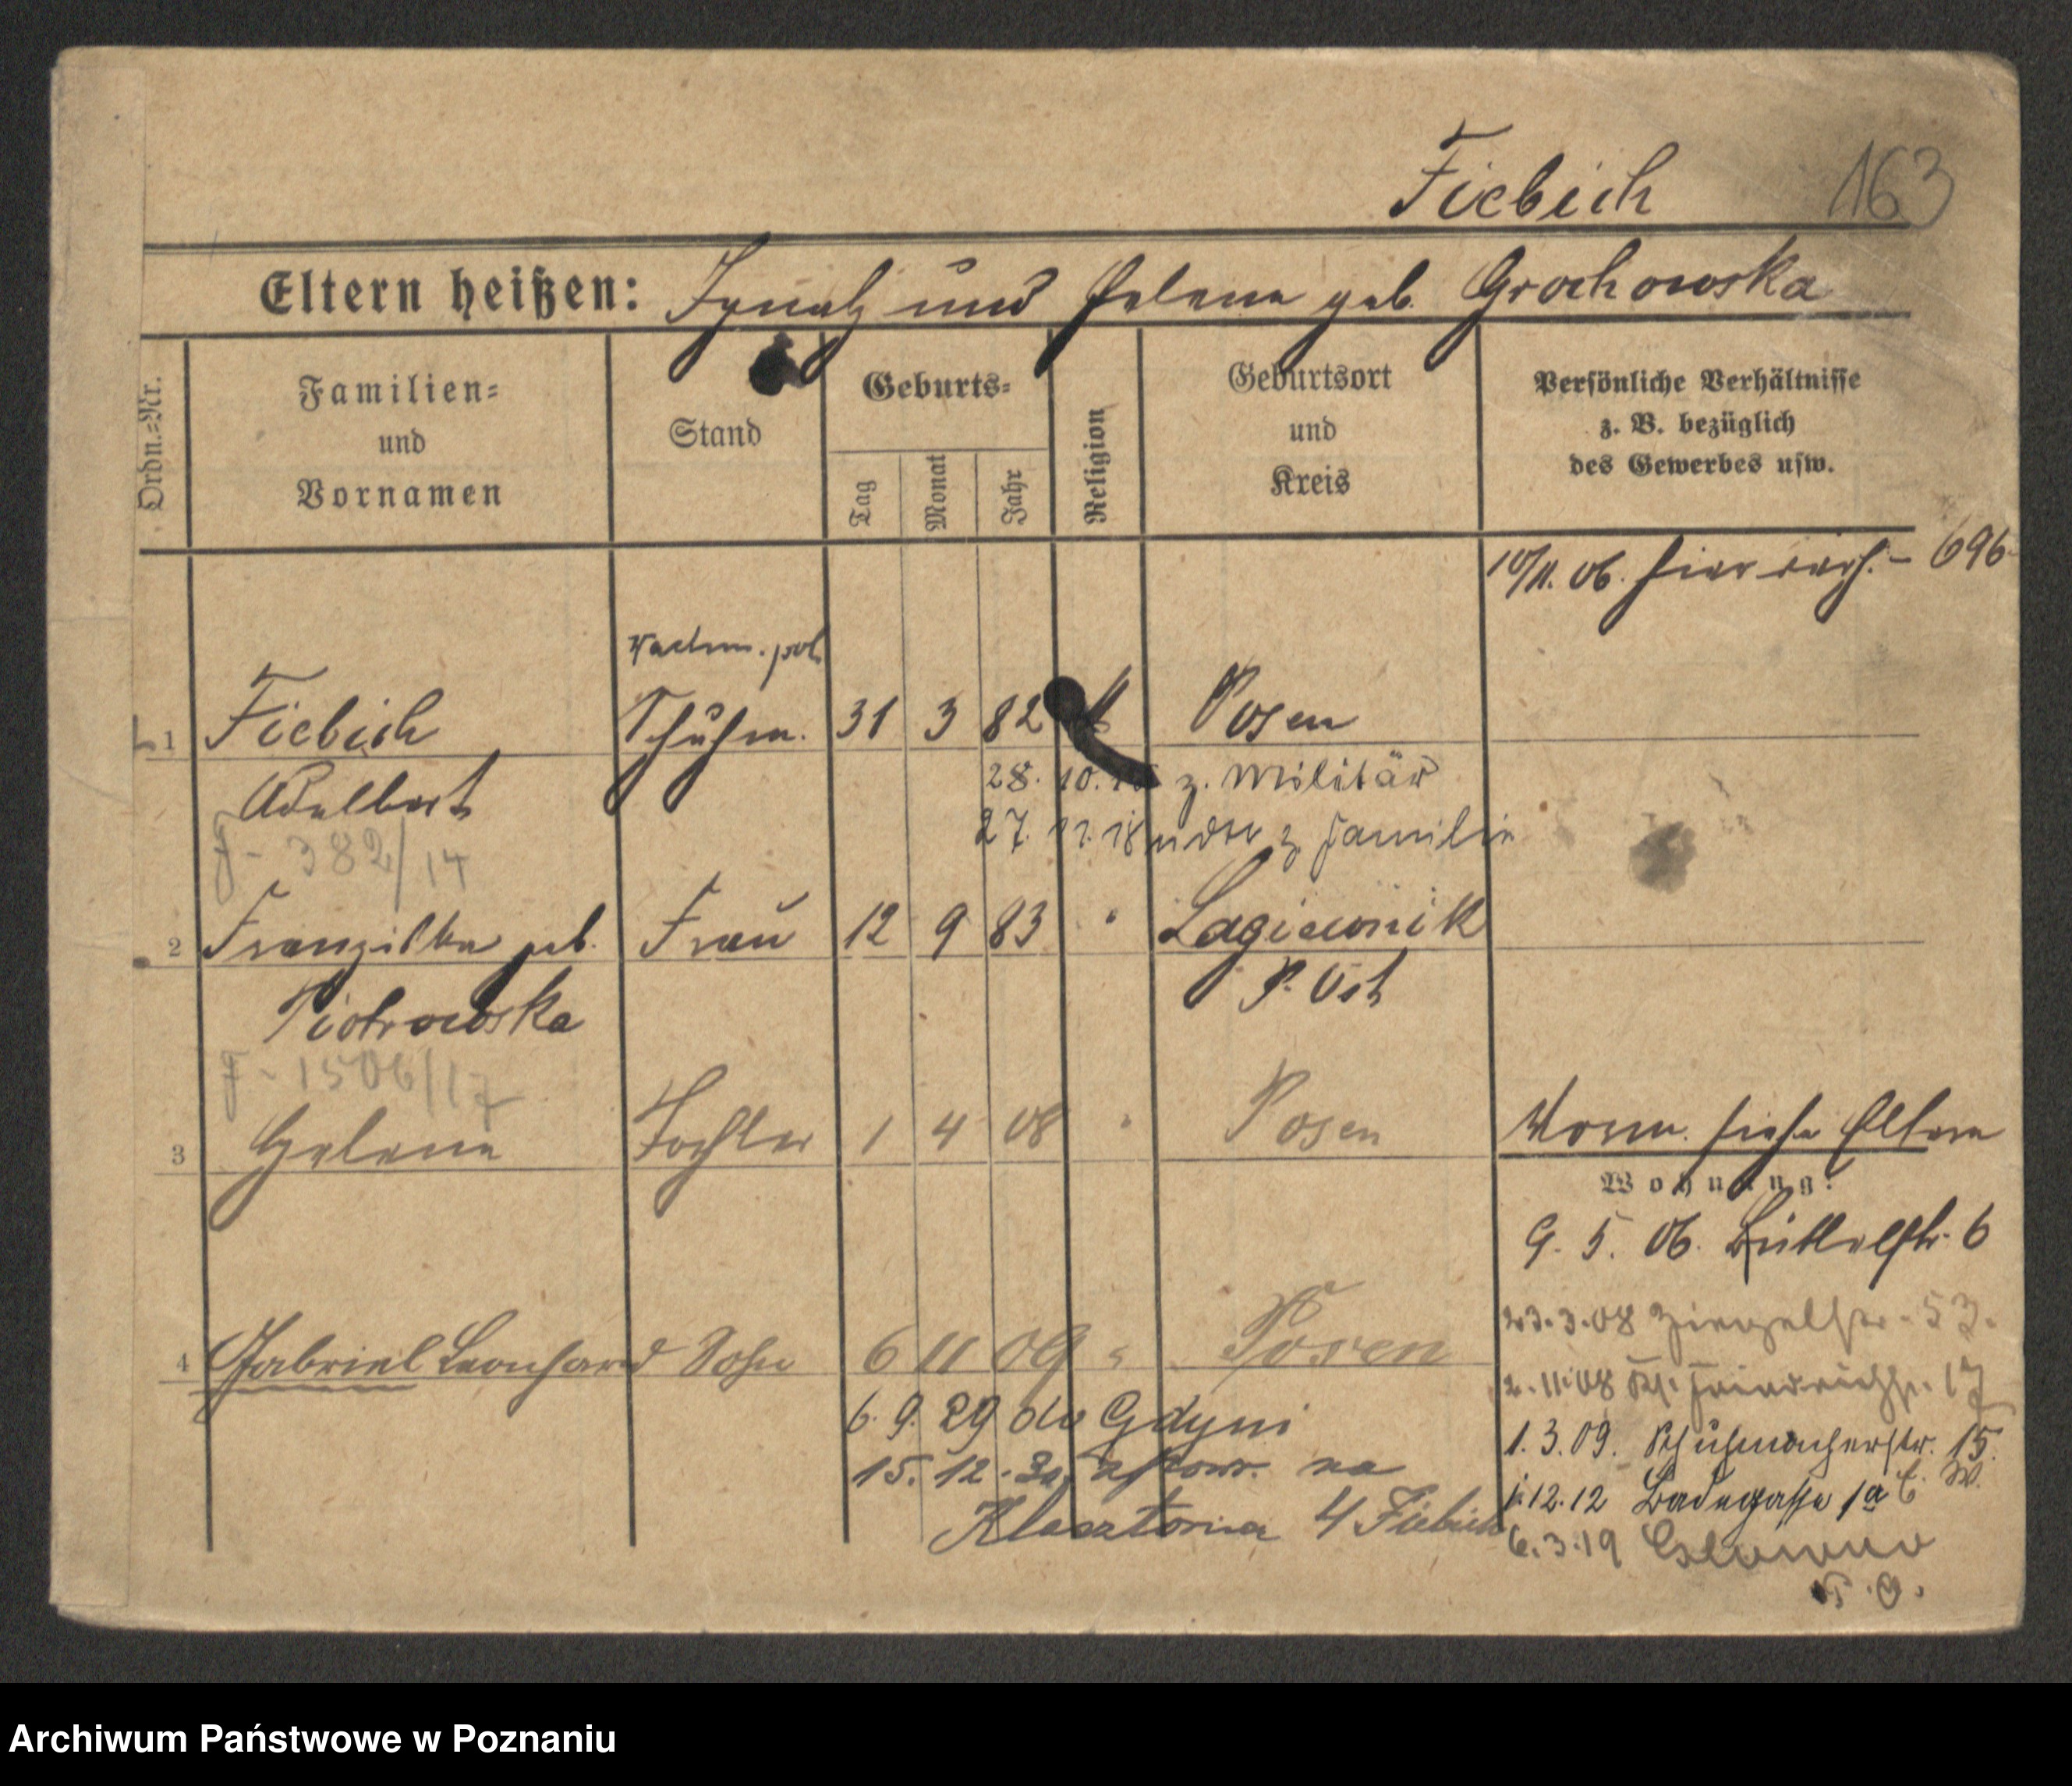 Fiebich 163
Eltern heißen: Ignatz und Helena geb. Grochowska
Ordn.=Nr.
Familien=
und
Vornamen
Stand
Geburts=
Tag
Monat
Jahr
Religion
Geburtsort
und
Kreis
Persönliche Verhältnisse
z. B. bezüglich
des Gewerbes usw.
10/11. 06. hier - 696
Wachm. pol
1 Fiebich Schuhm. 31 3 82 k Posen
Adalbert 28. 10. z. Militär
27. 11. 18 z. Familie
F - 382/14
2 Franziska geb. Frau 12 9 83 " Lagiewnik
Piotrowska P. Ost
F - 1506/17
3 Helene Tochter 1 4 08 " Posen
Vorm. siehe Eltern
Wohnung:
9. 5. 06. Büttelstr. 6
23.3.08 Ziegelstr. 53.
4 Gabriel Leonhard Sohn 6 11 09 " Posen
2.11.08 Kl. 17
6. 9. 29 do Gdyni
1.3.09. Schuhmacherstr. 15.
15. 12. 30 z powr. na
1.12.12 Badegasse 1a
Klasztorna 4 Fiebich
6.3.19
T. O.
Archiwum Państwowe w Poznaniu